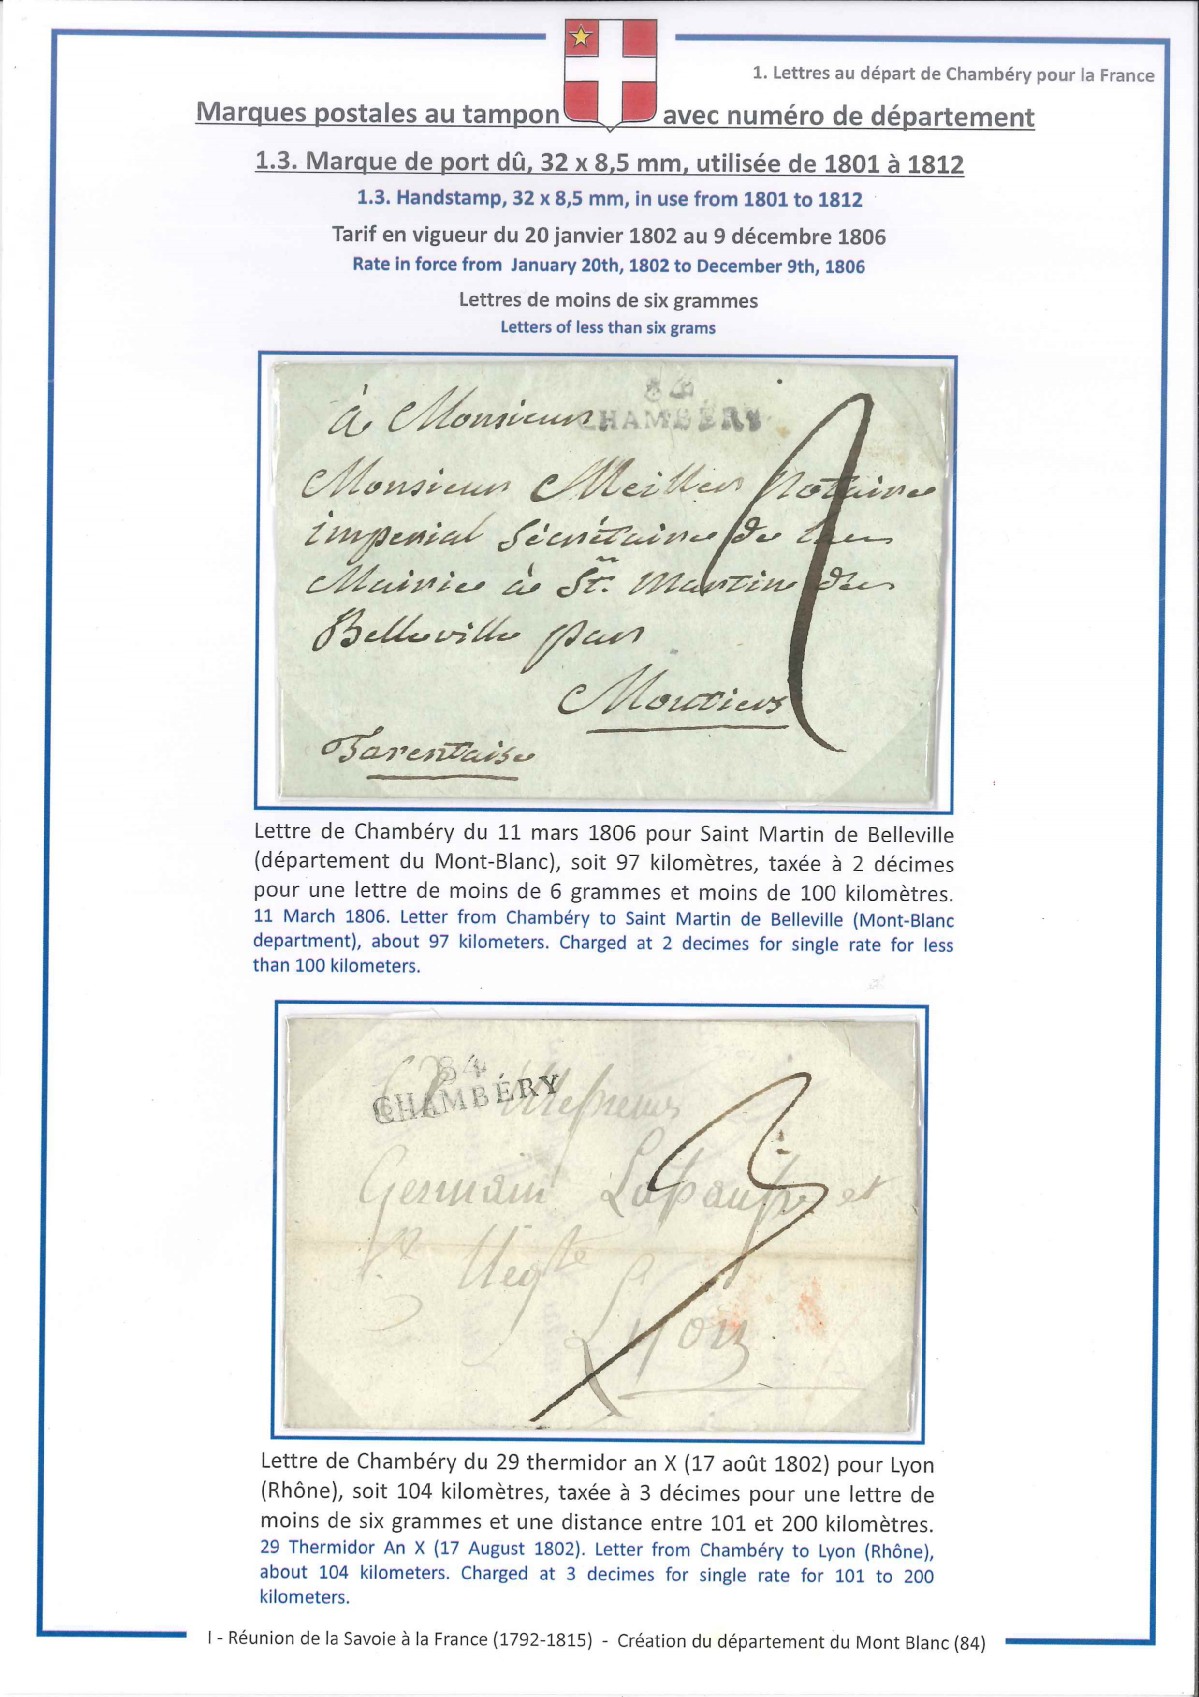 1. Lettres au départ de Chambéry pour la France
Marques postales au tampon avec numéro de département
1.3. Marque de port dû, 32 x 8,5 mm, utilisée de 1801 à 1812
1.3. Handstamp, 32 x 8,5 mm, in use from 1801 to 1812
Tarif en vigueur du 20 janvier 1802 au 9 décembre 1806
Rate in force from January 20th, 1802 to December 9th, 1806
Lettres de moins de six grammes
Letters of less than six grams
84
CHAMBÉRY
à Monsieur
Monsieur Meiller Notaire
imperial Sécrétaire de la
Mairie à St. Martin de
Belleville par
Moutiers
Tarentaise
2
Lettre de Chambéry du 11 mars 1806 pour Saint Martin de Belleville
(département du Mont-Blanc), soit 97 kilomètres, taxée à 2 décimes
pour une lettre de moins de 6 grammes et moins de 100 kilomètres.
11 March 1806. Letter from Chambéry to Saint Martin de Belleville (Mont-Blanc
department), about 97 kilometers. Charged at 2 decimes for single rate for less
than 100 kilometers.
84
CHAMBÉRY
Germain et
Lyon
3
Lettre de Chambéry du 29 thermidor an X (17 août 1802) pour Lyon
(Rhône), soit 104 kilomètres, taxée à 3 décimes pour une lettre de
moins de six grammes et une distance entre 101 et 200 kilomètres.
29 Thermidor An X (17 August 1802). Letter from Chambéry to Lyon (Rhône),
about 104 kilometers. Charged at 3 decimes for single rate for 101 to 200
kilometers.
I - Réunion de la Savoie à la France (1792-1815) - Création du département du Mont Blanc (84)